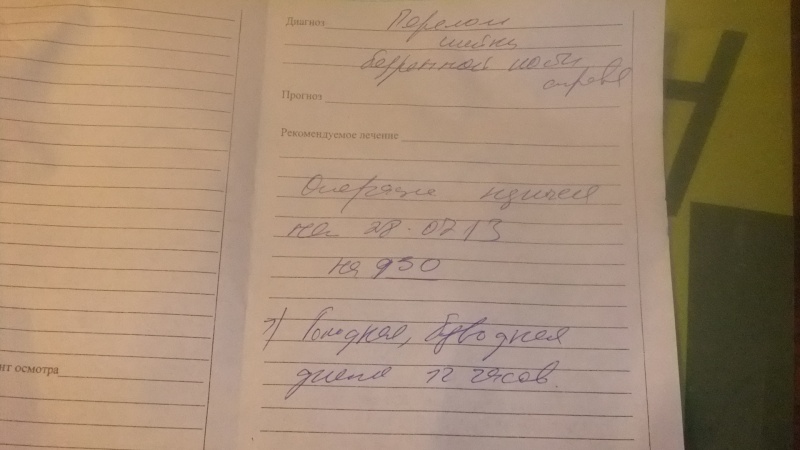 Диагноз Перелом
шейки
бедренной кости
справа
Прогноз
Рекомендуемое лечение
Операция
на 28.07 13
на 930
Голодная, безводная
диета 12 часов.
нт осмотра